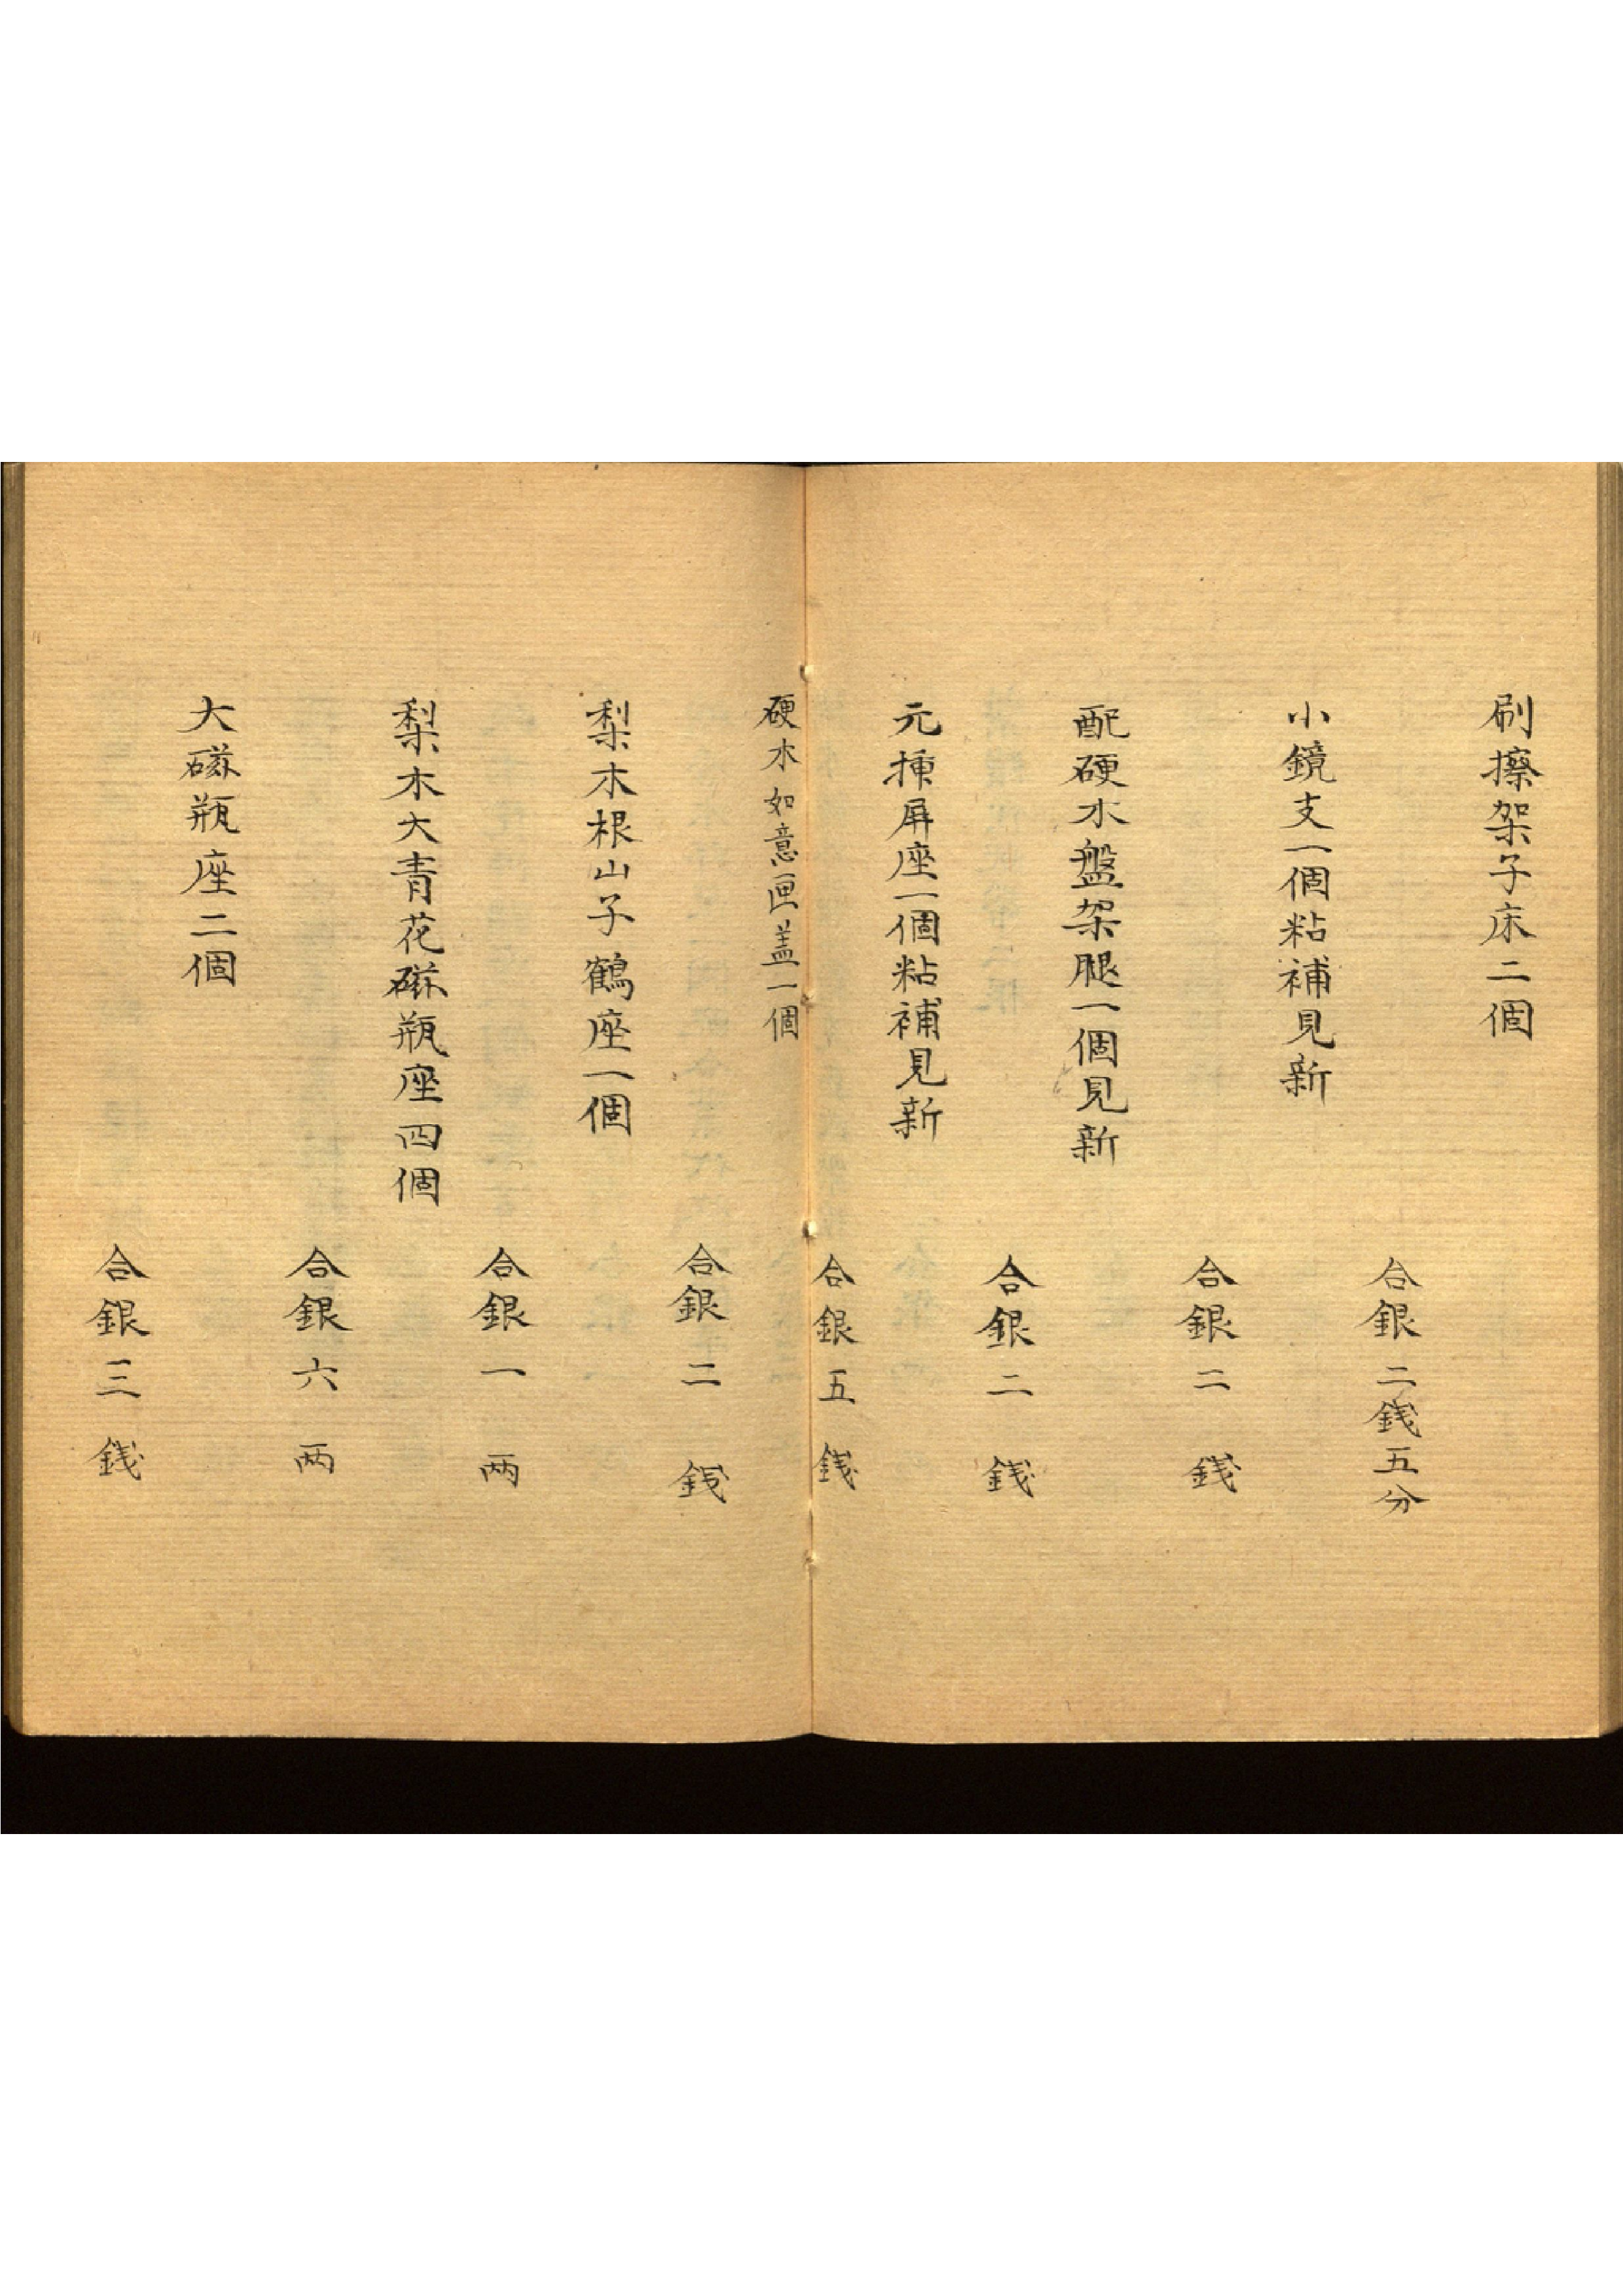 刷擦架子床二個
合銀二錢五分
小鏡支一個粘補見新
合銀二錢
配硬木盤架腿一個見新
合銀二錢
元揰屏座一個粘補見新
合銀五錢
硬木如意匣盖一個
合銀二錢
梨木根山子鶴座一個
合銀一両
梨木大青花磁瓶座四個
合銀六両
大磁瓶座二個
合銀三錢